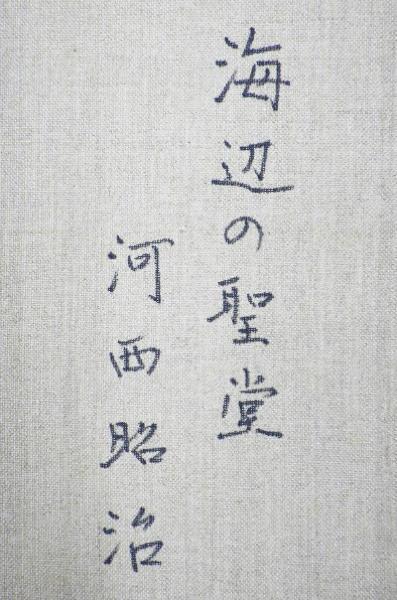 海辺の聖堂
河西昭治